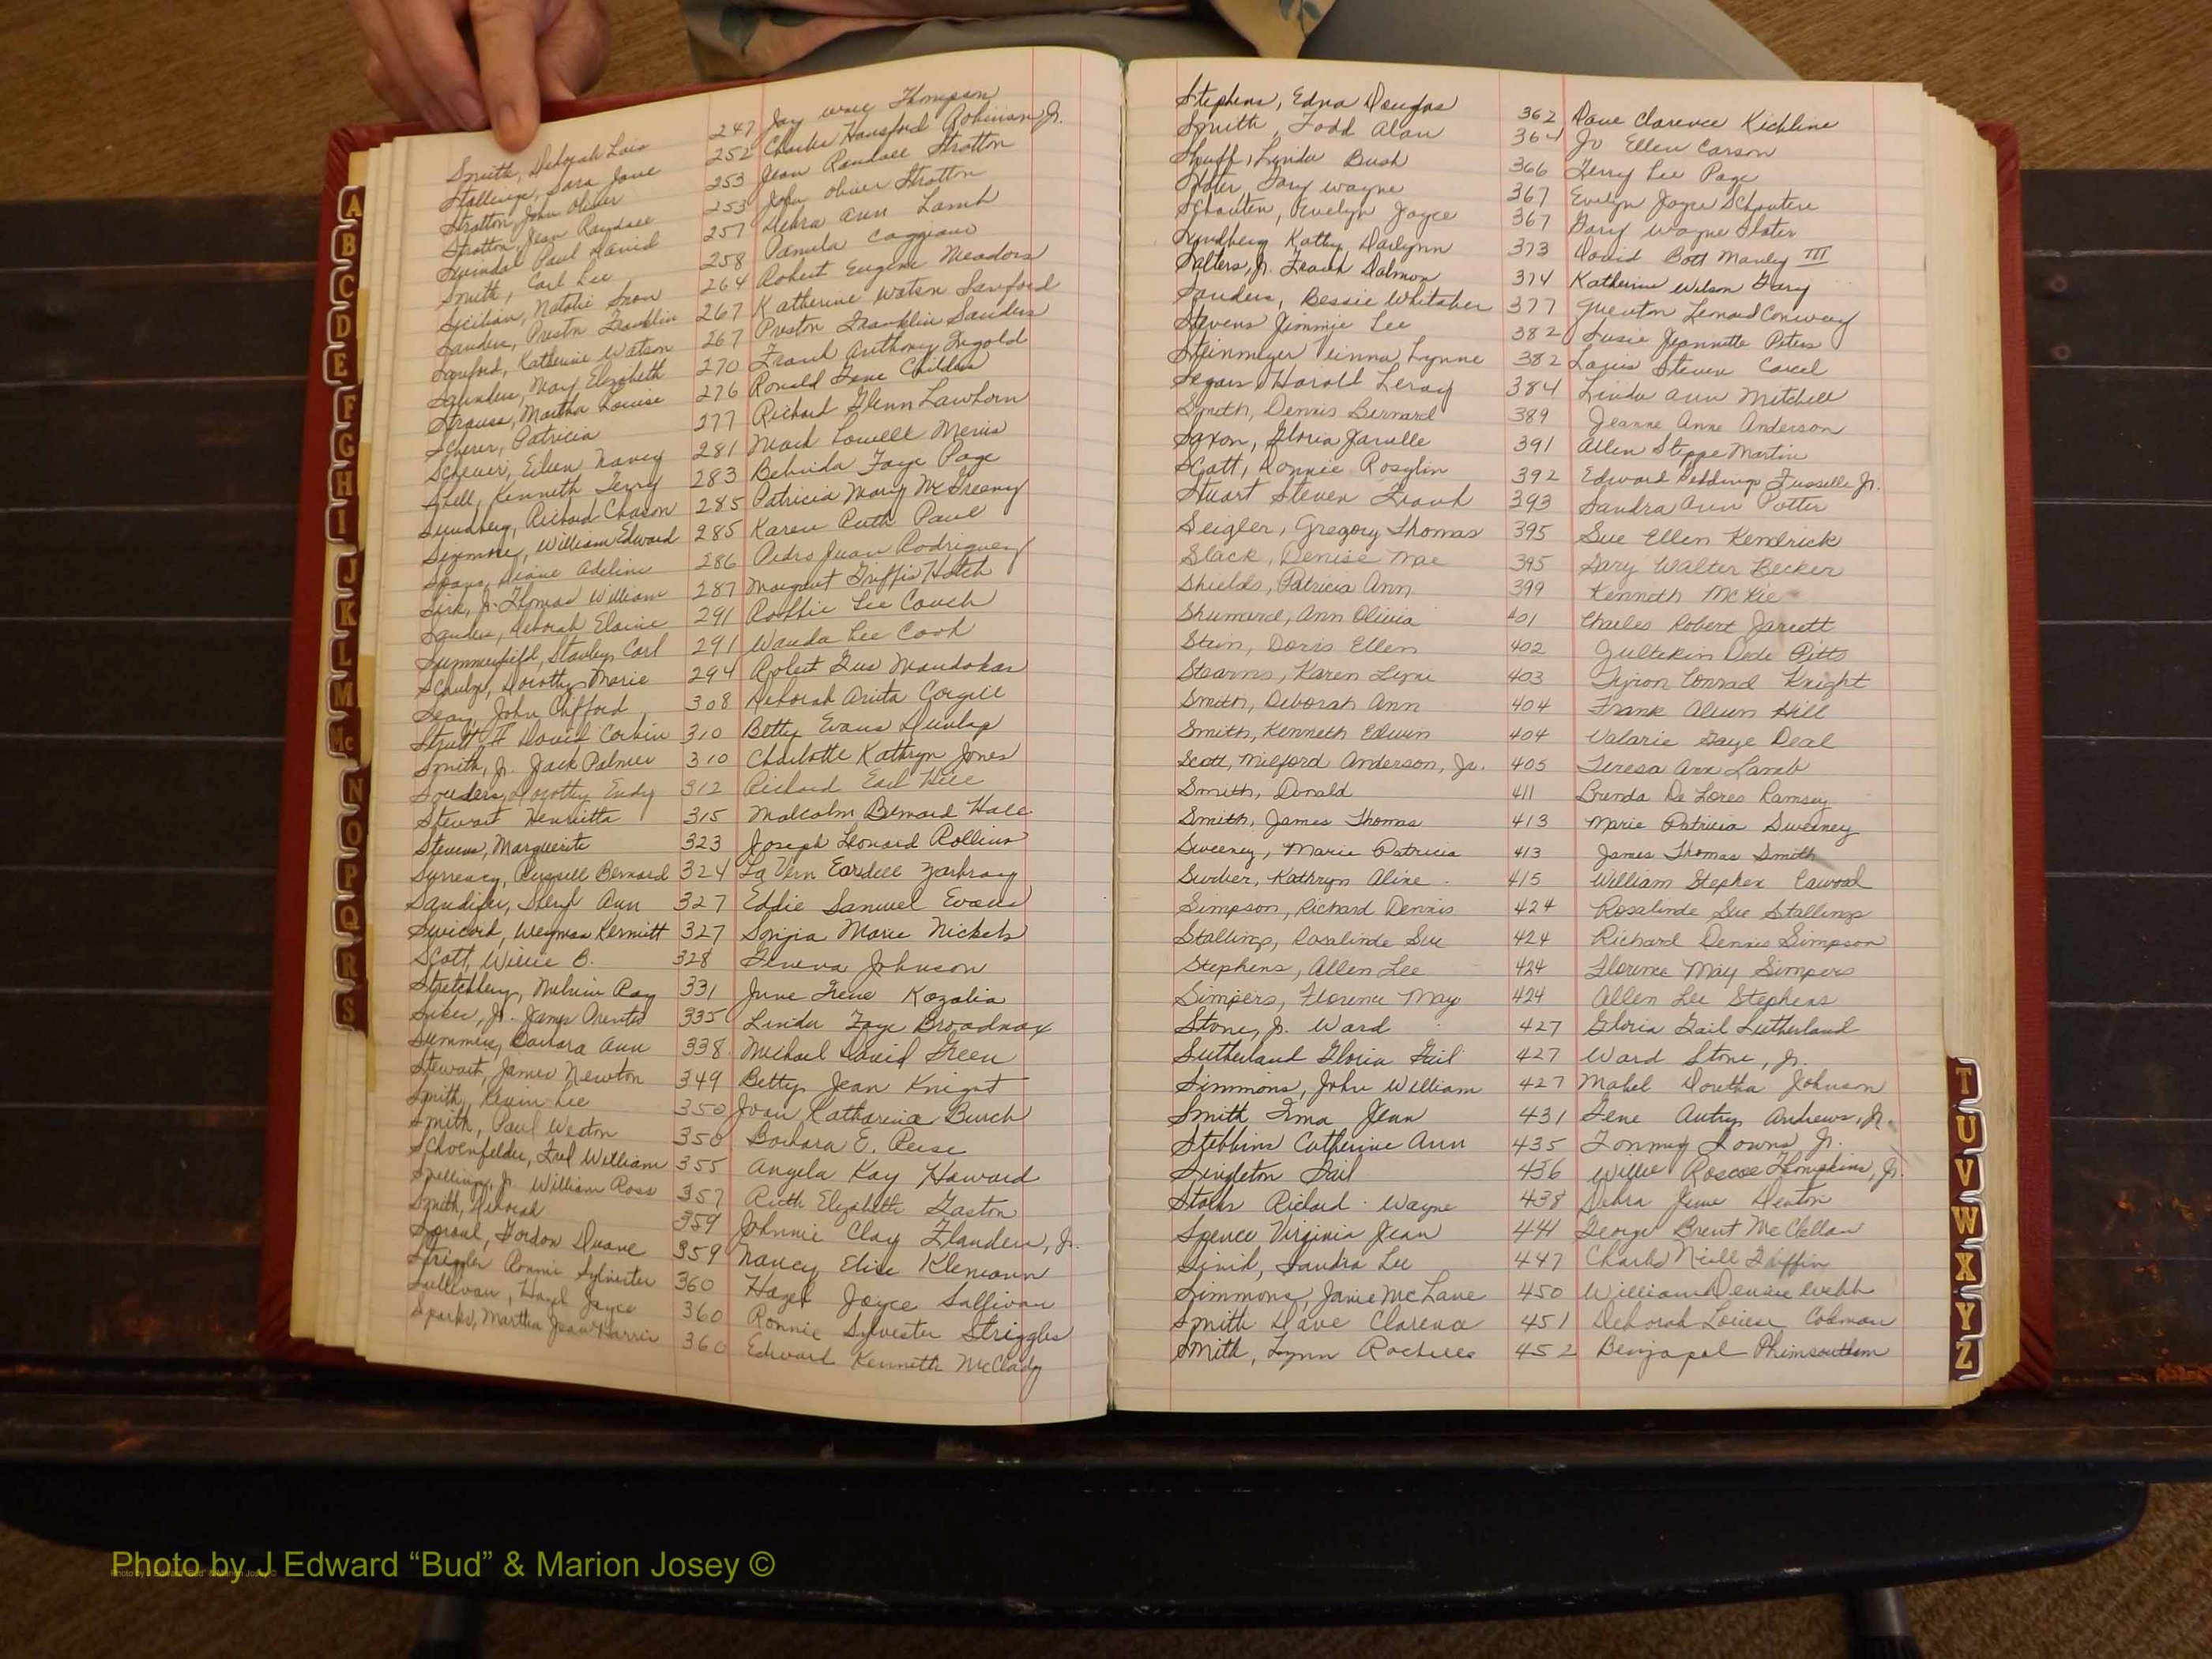 Smith, Deborah Lois 247 Jay Thompson
Stallings, Sara Jane 252 Charles Hansford Robinson Jr.
Stratton John Oliver 253 Jean Randall Stratton
Stratton, Jean Randall 253 John Oliver Stratton
Paul David 257 Debra Ann Lamb
Smith, Carl Lee 258 Pamela Caggiano
Sicilian, Natalie 264 Robert Eugene Meadors
Sanders, Preston Franklin 267 Katherine Watson Sanford
Sanford, Katherine Watson 267 Preston Franklin Sanders
Saunders, May Elizabeth 270 Frank Anthony Ingold
Strauss, Martha Louise 276 Ronald Gene Childers
Scherer, Patricia 277 Richard Glenn Lawhorn
Scheuer, Eileen Nancy 281 Mark Lowell
Shell, Kenneth Terry 283 Belinda Faye Page
Sundberg, Richard 285 Patricia Mary
William Edward 285 Karen Ruth Paul
Diane Adeline 286 Pedro Juan Rodriguez
Sirk, Jr. Thomas William 287 Margaret Griffis Hatch
Sanders, Deborah Elaine 291 Lee Couch
Summerfield, Stanley Carl 291 Wanda Lee Cook
Schulze, Dorothy Marie 294 Robert Gus
Seay, John Clifford 308 Deborah Anita
David Corbin 310 Betty Evans Dunlap
Smith, Jr. Jack Palmer 310 Charlotte Kathryn Jones
Souders, Dorothy 312 Richard Earl
Stewart Henrietta 315 Malcolm Bernard Hall
Stevens, Marguerite 323 Joseph Leonard Rollins
Russell Bernard 324 La Vern
Sandifer, Sheryl Ann 327 Eddie Samuel Evans
Swicord, Weyman Kermitt 327 Sonjia Marie Nickels
Scott, Willie B. 328 Geneva Johnson
Melvin Ray 331 June Irene Kozalia
Sikes, Jr. James 335 Linda Faye Broadnax
Barbara Ann 338 Michael David Green
Stewart, James Newton 349 Betty Jean Knight
Smith, Kevin Lee 350 Joan Katharina Burch
Smith, Paul Weston 350 Barbara E. Reese
Schoenfelder, Fred William 355 Angela Kay Howard
Jr. William Ross 357 Ruth Elizabeth Gaston
Smith, Deborah 359 Johnnie Clay Flanders, Jr.
Sproul, Gordon Duane 359 Nancy Elise Klemann
Striggles Ronnie Sylvester 360 Hazel Joyce Sullivan
Sullivan, Hazel Joyce 360 Ronnie Sylvester Striggles
Sparks, Martha Jean Harris 360 Edward Kenneth McClady
Stephens, Edna Douglas 362 Dave Clarence Kichline
Smith, Todd Alan 364 Jo Ellen Carson
Shuff, Linda Bush 366 Terry Lee Page
Slater, Gary Wayne 367 Evelyn Joyce Schouten
Schouten, Evelyn Joyce 367 Gary Wayne Slater
Kathy Darlynn 373 David Bott Manley III
Salters, Jr. Frank Dalmon 374 Katherine Wilson Gary
Sanders, Bessie Whitaker 377 Quenton Leonard Conway
Stevens Jimmie Lee 382 Susie Jeannette Peters
Steinmeyer Lynne 382 Louis Steven
Segars Harold Leroy 384 Linda Ann Mitchell
Smith, Dennis Bernard 389 Jeanne Anne Anderson
Saxon, Gloria Janelle 391 Allen Steppe Martin
Scott, Donnie Rosylin 392 Edward Jr.
Stuart Steven Frank 393 Sandra Ann Potter
Seigler, Gregory Thomas 395 Sue Ellen Kendrick
Slack, Denise Mae 395 Gary Walter Becker
Shields, Patricia Ann 399 Kenneth McKie
Shumard, Ann Olivia 401 Charles Robert Jarrett
Stein, Doris Ellen 402 Gultekin Dede Pitts
Stearns, Karen Lynn 403 Tyron Conrad Knight
Smith, Deborah Ann 404 Frank Alvin Hill
Smith, Kenneth Edwin 404 Valarie Gaye Deal
Scott, Milford Anderson, Jr. 405 Teresa Ann Lamb
Smith, Donald 411 Brenda De Lores Ramsey
Smith, James Thomas 413 Marie Patricia Sweeney
Sweeney, Marie Patricia 413 James Thomas Smith
Kathryn Aline 415 William Stephen Cawood
Simpson, Richard Dennis 424 Rosalinde Sue Stallings
Stallings, Rosalinde Sue 424 Richard Dennis Simpson
Stephens, Allen Lee 424 Florence May Simpers
Simpers, Florence May 424 Allen Lee Stephens
Stone, Jr. Ward 427 Gloria Gail Sutherland
Sutherland Gloria Gail 427 Ward Stone, Jr.
Simmons, John William 427 Mabel Doretha Johnson
Smith Irma Jean 431 Gene Autry Andrews, Jr.
Stebbins Catherine Ann 435 Tommy Downs Jr.
Singleton Gail 436 Willie Roscoe Thompkins, Jr.
Stalls Richard Wayne 438 Debra June Denton
Spence Virginia Jean 441 George Brent McClellan
Sandra Lee 447 Charles Neill Griffin
Simmons, Janie McLane 450 William Dennis Webb
Smith Dave Clarence 451 Deborah Louise Colman
Smith, Lynn Rochelle 452 Benjapol Phimsouthem
A
B
C
D
E
F
G
H
I
J
K
L
M
Mc
N
O
P
Q
R
S
T
U
V
W
X
Y
Z
Photo by J Edward “Bud” & Marion Josey ©